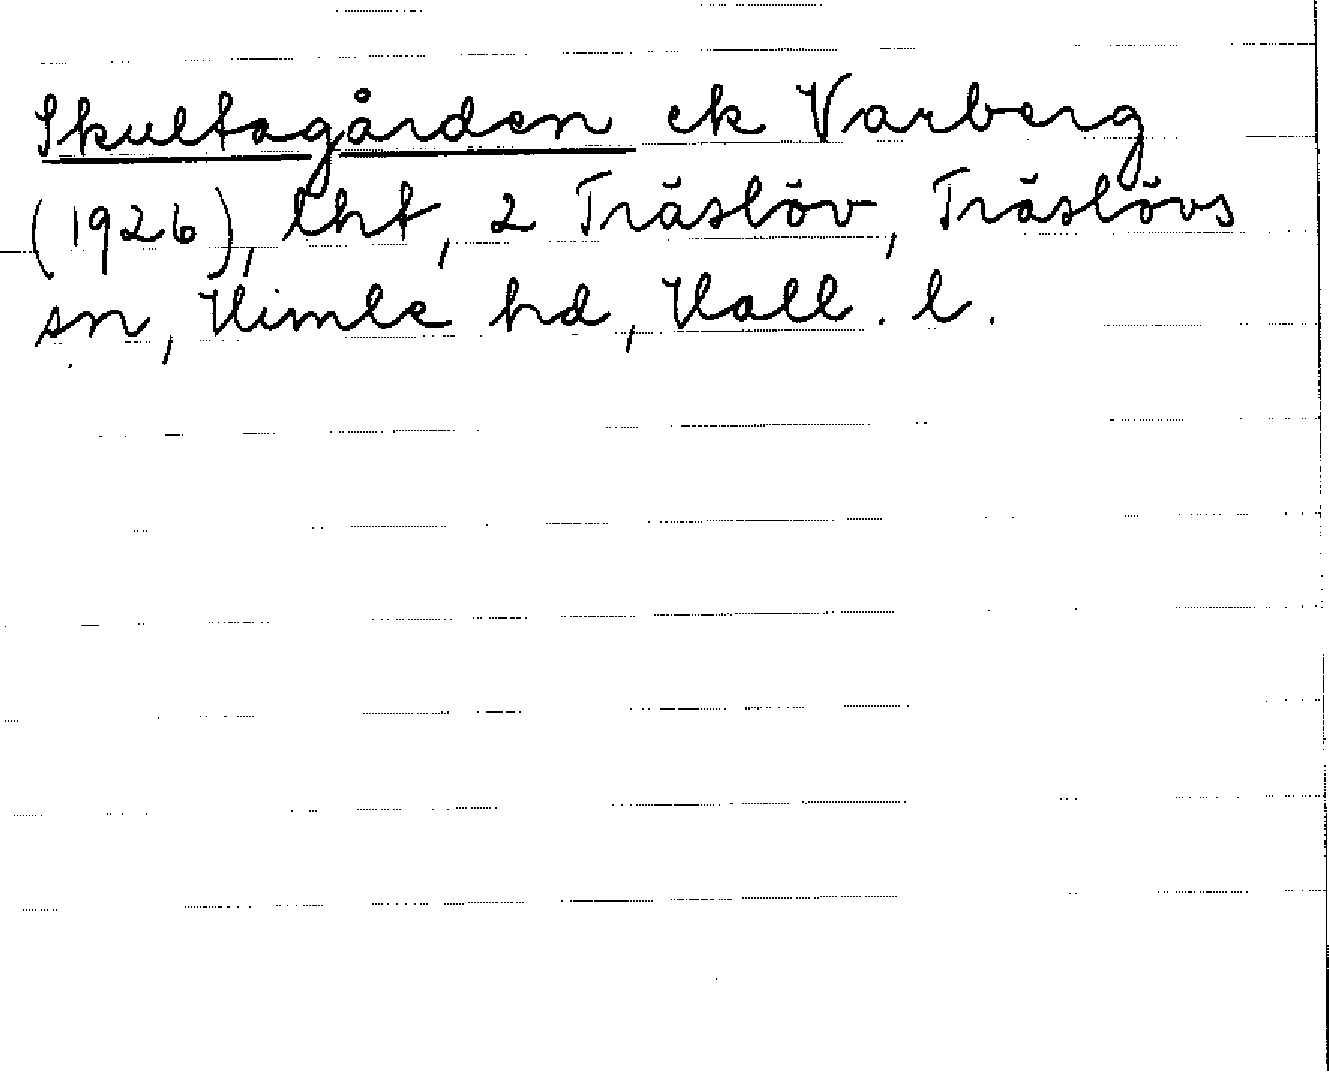 Skultagården ek Varberg
(1926), lht, 2 Träslöv, Träslövs
sn, Himle hd, Hall. l.